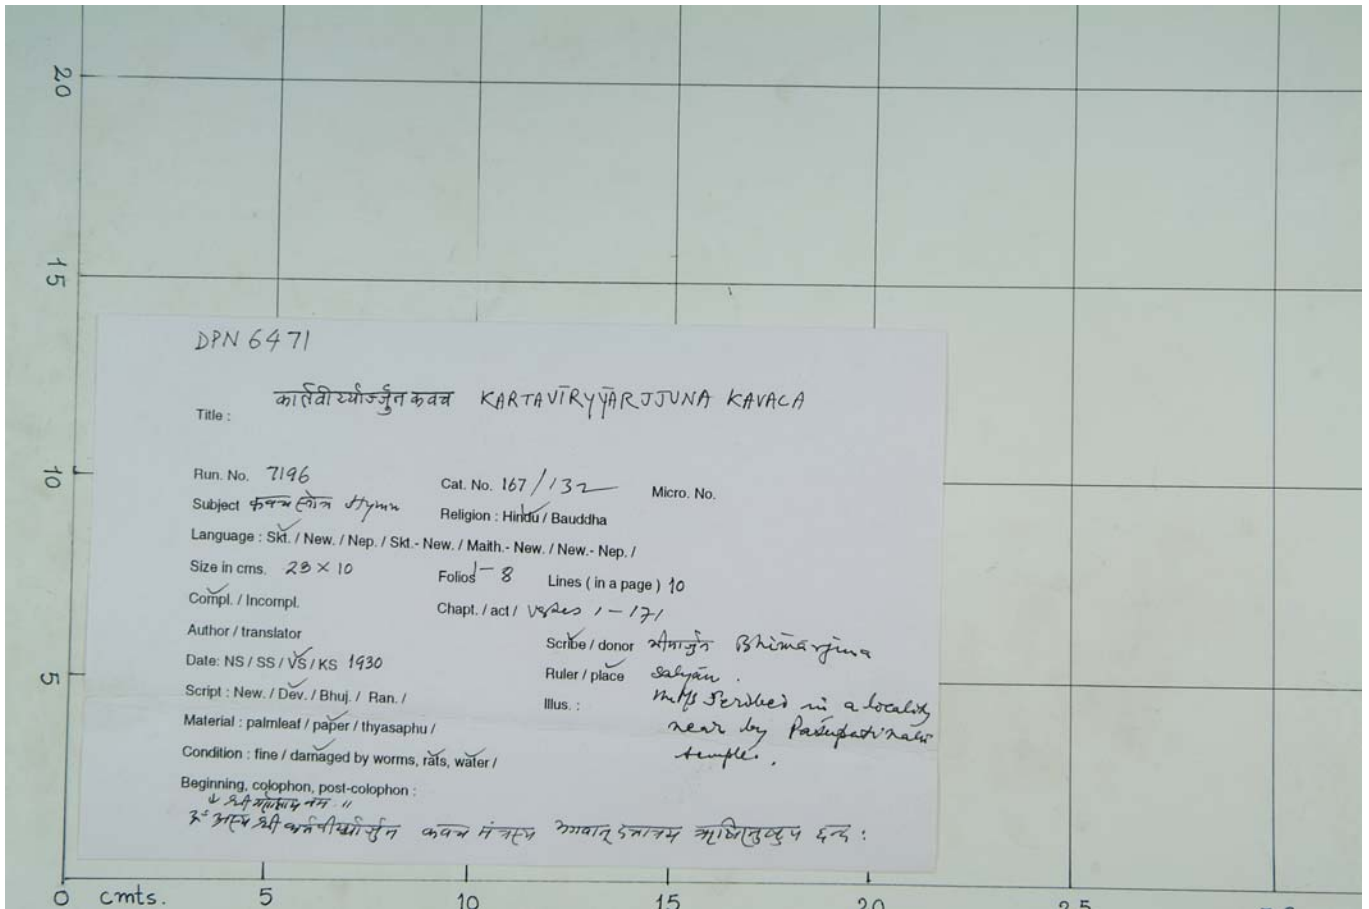 20
15
10
5
DPN 6471
कार्तवीर्य्यार्ज्जुन कवच KARTAVĪRYYĀRJJUNA KAVACA
Title :
Run. No. 7196 Cat. No. 167/132 Micro. No.
Subject कवच स्तोत्र Hymn Religion : Hindu / Bauddha
Language : Skt. / New. / Nep. / Skt.- New. / Maith.- New. / New.- Nep. /
Size in cms. 23 × 10 Folios 1-8 Lines ( in a page ) 10
Compl. / Incompl. Chapt. / act / Verses 1-171
Author / translator Scribe / donor भीमार्जुन Bhimārjuna
Date: NS / SS / VS / KS 1930 Ruler / place Salyān.
Script : New. / Dev. / Bhuj. / Ran. / Illus. : Scribed in a locality
Material : palmleaf / paper / thyasaphu / near by Paśupatinath
Condition : fine / damaged by worms, rats, water / temple.
Beginning, colophon, post-colophon :
नमः ॥
अस्य श्री कार्तवीर्य्यार्जुन कवच मंत्रस्य भगवान् दत्तात्रय छन्दः
0 cmts. 5 10 15 20 25